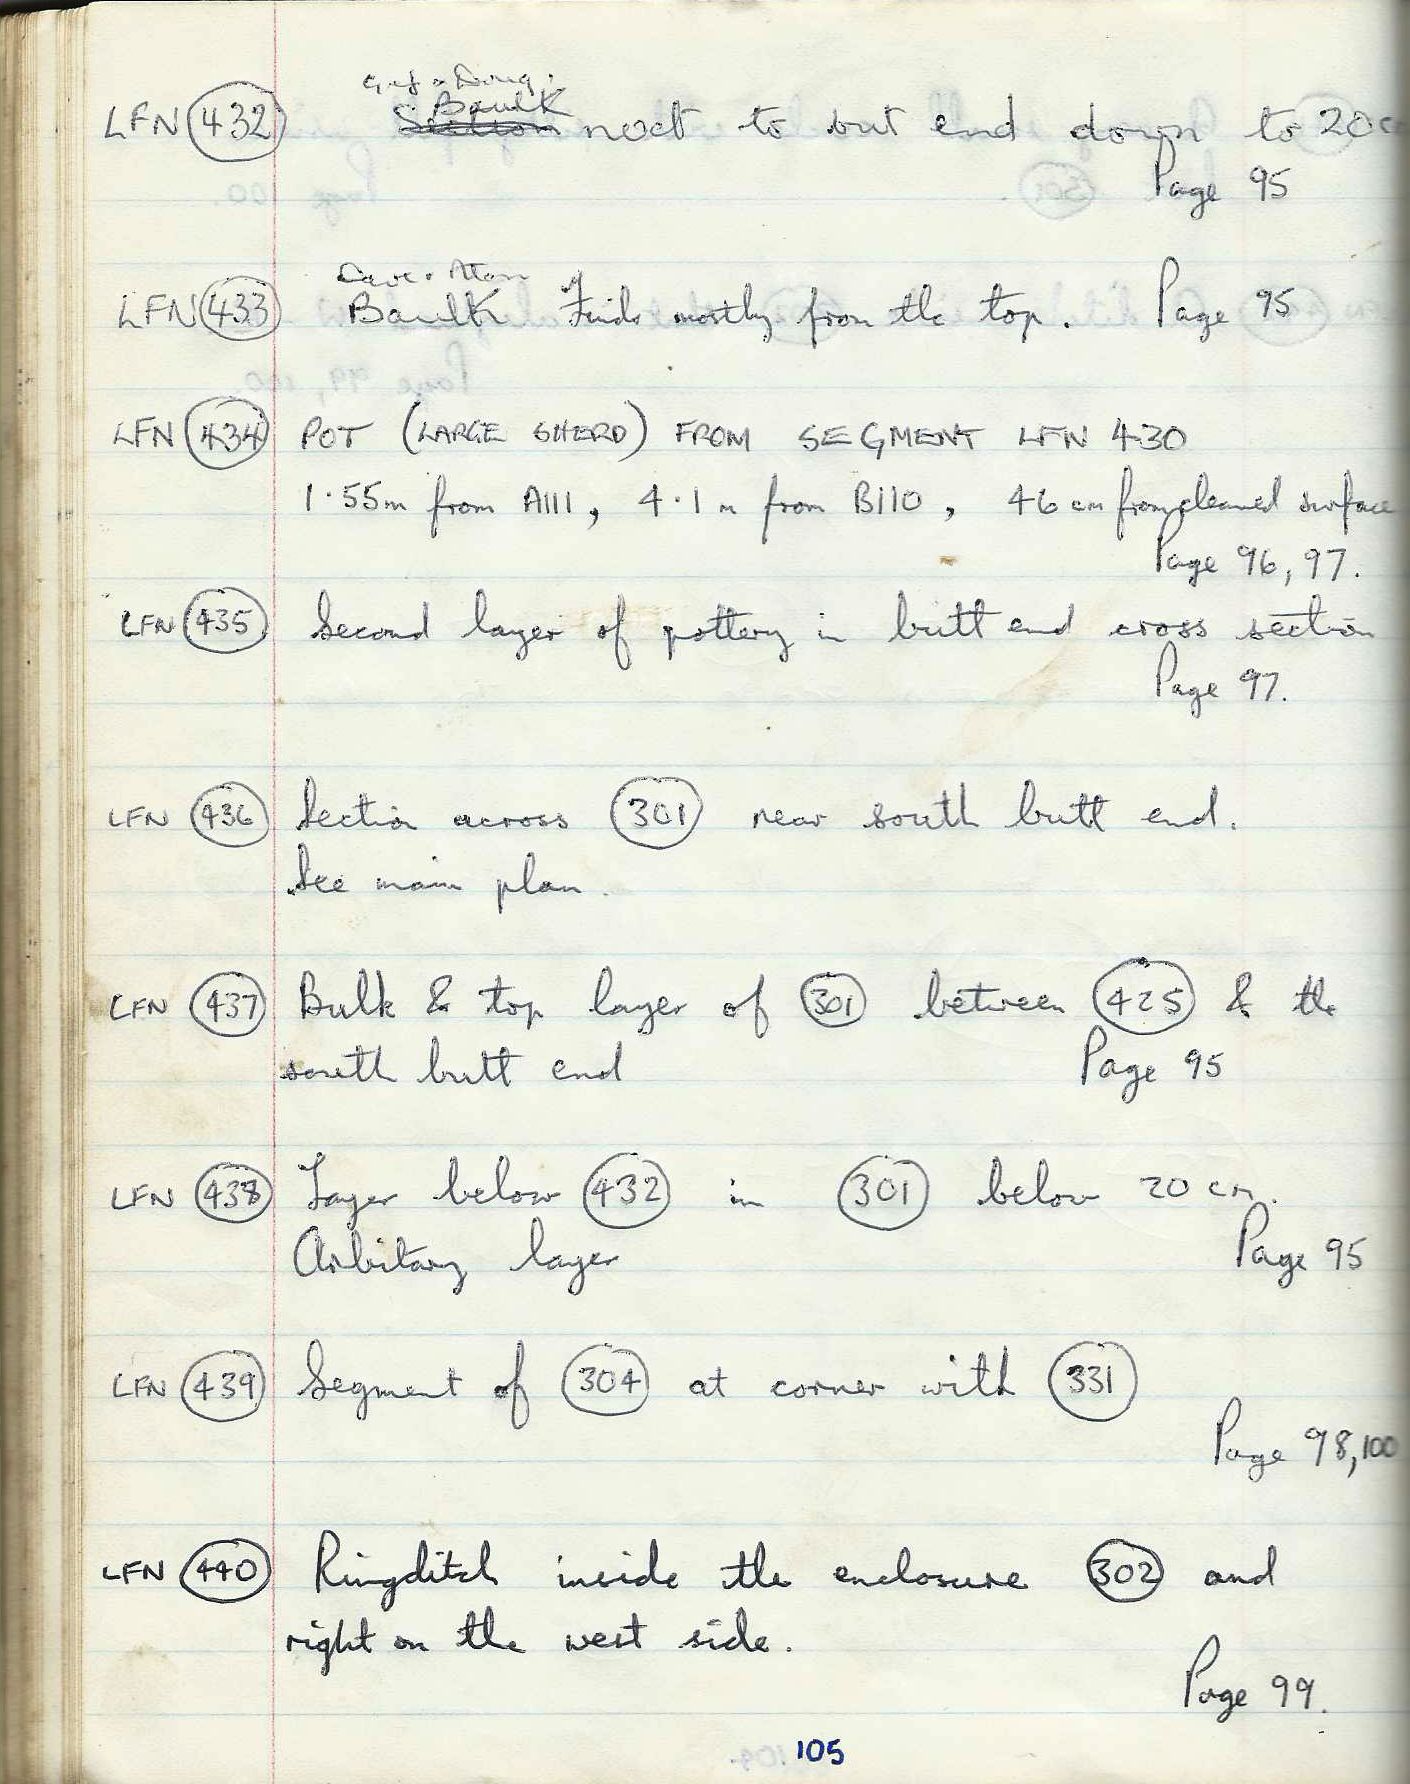 Baulk
LFN 432 Section next to but end down to 20c
Page 95
Dave + Alan
LFN 433 Baulk Finds mostly from the top. Page 95
LFN 434 POT (LARGE SHERD) FROM SEGMENT LFN 430
1·55m from A111, 4·1m from B110, 46 cm from cleaned surface
Page 96, 97.
LFN 435 Second layer of pottery in butt end cross section
Page 97.
LFN 436 Section across 301 near south butt end.
See main plan.
LFN 437 Bulk & top layer of 301 between 425 & the
south butt end Page 95
LFN 438 Layer below 432 in 301 below 20 cm.
Arbitary layer Page 95
LFN 439 Segment of 304 at corner with 331
Page 98, 100
LFN 440 Ringditch inside the enclosure 302 and
right on the west side.
Page 99.
105